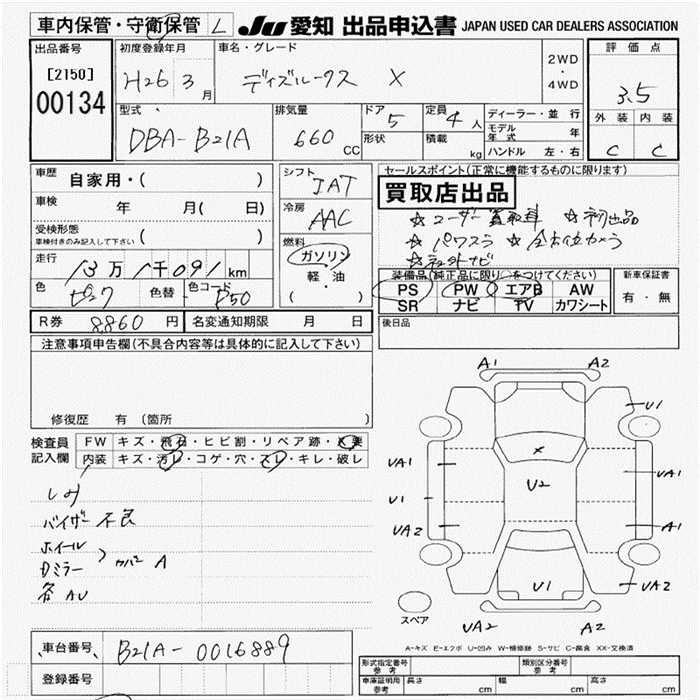 車内保管・守衛保管 L JU 愛知 出品申込書 JAPAN USED CAR DEALERS ASSOCIATION
出品番号 初度登録年月 車名・グレード 2WD・4WD 評価点
[2150] H26 3月 デイズルークス X 3.5
00134
型式 排気量 ドア 定員 ディーラー・並行 外装 内装
DBA-B21A 660 CC 5 4人 モデル年式 年
形状 積載 kg ハンドル 左・右 C C
車歴 自家用・( ) シフト IAT セールスポイント(正常に機能するものに限ります)
買取店出品
車検 年 月( 日) 冷房 AAC ☆ユーザー買取車 ☆初出品
受検形態 車検付きのみ記入して下さい ( ) 燃料 ☆パワスラ ☆全方位カメラ
ガソリン ☆社外ナビ
走行 13万1千091km 軽・油 装備品(純正品に限り○をつけてください) 新車保証書
色 ピンク 色替 色コード P50 ( ) PS PW エアB AW 有・無
SR ナビ TV カワシート
R券 8,860円 名変通知期限 月 日 後日品
注意事項申告欄(不具合内容等は具体的に記入して下さい)
修復歴 有 (箇所 )
検査員記入欄 FW キズ・飛石・ヒビ割・リペア跡・X要
内装 キズ・汚レ・コゲ・穴・スレ・キレ・破レ
シミ
バイザー不良
ホイール
Dミラー カバー A
各AU
A1 A2
U1
X
UA1 U2 UA1
U1
UA2 A1
U1 UA2
スペア UA2 A2
A-キズ E-エクボ U-凹み W-補修跡 S-サビ C-腐食 XX-交換済
車台番号 B21A-0016889
登録番号
形式指定番号 参考 類別区分番号 参考
車庫証明用 参考 長さ cm 幅 cm 高さ cm